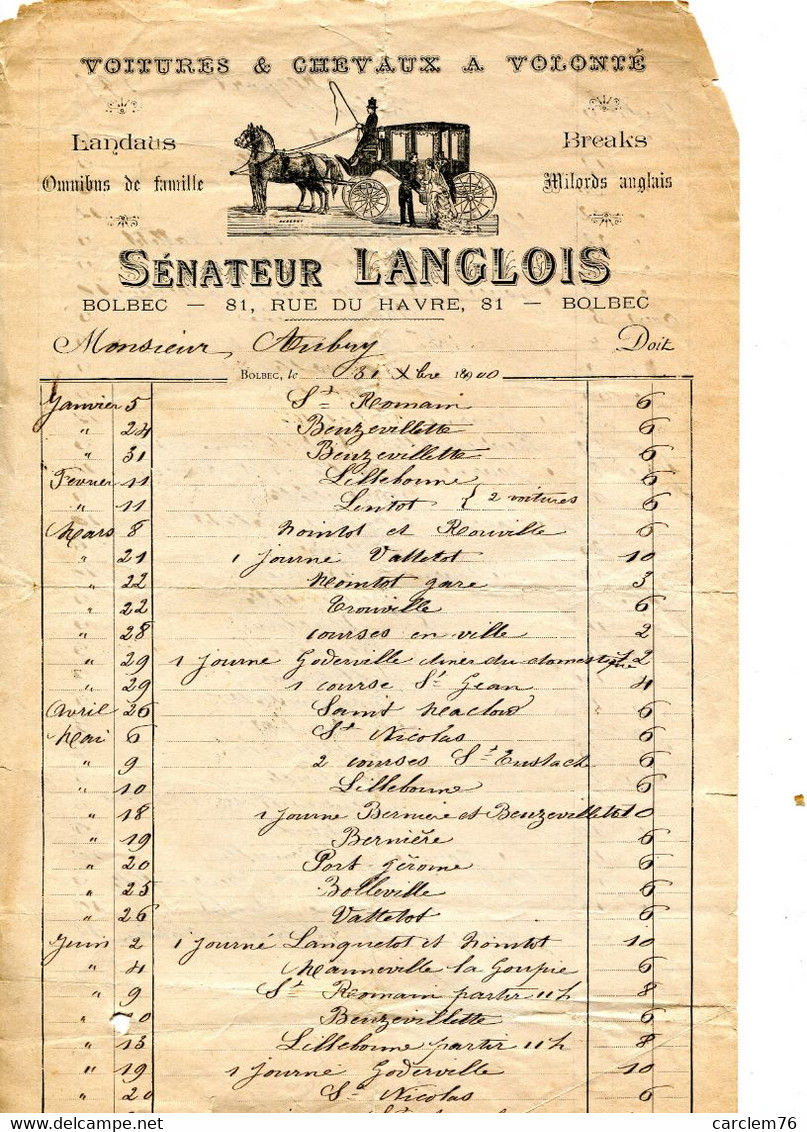 VOITURES & CHEVAUX A VOLONTÉ
Landaus
Omnibus de famille
Breaks
Milords anglais
SÉNATEUR LANGLOIS
BOLBEC — 81, RUE DU HAVRE, 81 — BOLBEC
Monsieur Aubry Doit
BOLBEC, le 31 Xbre 1900
Janvier 5 St Romain 6
" 24 Beuzevillette 6
" 31 Beuzevillette 6
Fevrier 11 Lillebonne 6
" 11 Lintot } 2 voitures 6
Mars 8 Nointot et Rouville 6
" 21 1 journé Vattetot 10
" 22 Nointot gare 3
" 22 Trouville 6
" 28 courses en ville 2
" 29 1 journé Goderville diner du domestique 12
" 29 1 course St Jean 4
Avril 26 Saint Maclou 6
Mai 6 St Nicolas 6
" 9 2 courses St Eustache 6
" 10 Lillebonne 6
" 18 1 journe Bernière et Beuzevillette 10
" 19 Bernière 6
" 20 Port Gérome 6
" 25 Bolleville 6
" 26 Vattetot 6
Juin 2 1 journé Lanquetot et Nointot 10
" 4 Manneville la Goupie 6
" 9 St Romain partir 11 h 8
" 10 Beuzevillette 6
" 13 Lillebonne partir 11 h 8
" 19 1 journé Goderville 10
" 20 St Nicolas 6
carclem76